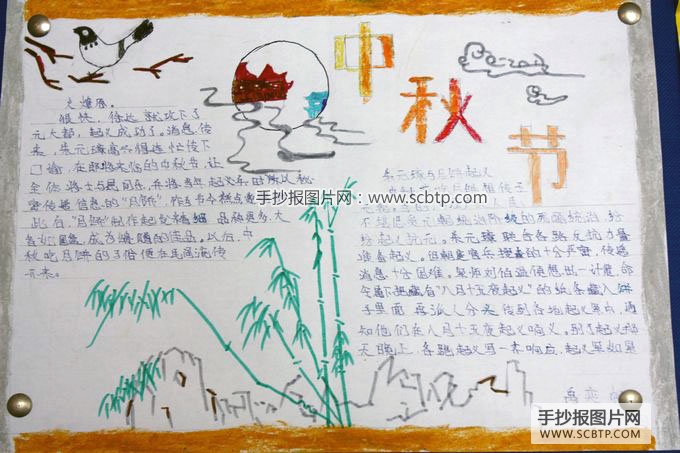 中秋节
火燎原。
很快，徐达就攻下了
元大都，起义成功了。消息传
来，朱元璋高兴得连忙传下
口谕，在即将来临的中秋节，让
全体将士与民同乐，并将当年起义
密传递信息的"月饼"，作为节令糕点
此后，"月饼"制作起发精细，品种更多，大
者如圆盘，成为馈赠的佳品。以后中
秋吃月饼的习俗便在民间流传
开来。
朱元璋与月饼起义
中秋节吃月饼相传
元
不堪忍受元朝统治阶级的残酷统治，纷
纷起义抗元。朱元璋联合各路反抗力量
准备起义。但朝庭官兵搜查的十分严密，传递
消息十分困难。军师刘伯温便想出一计策，命
令属下把藏有"八月十五夜起义"的纸条藏入饼
子里面，再派人分头传到各地起义军中，通
知他们在八月十五夜起义响义。到了起义那
天晚上，各路起义军一齐响应，起义军如星
手抄报图片网 www.scbtp.com
手抄报图片网
WWW.SCBTP.COM